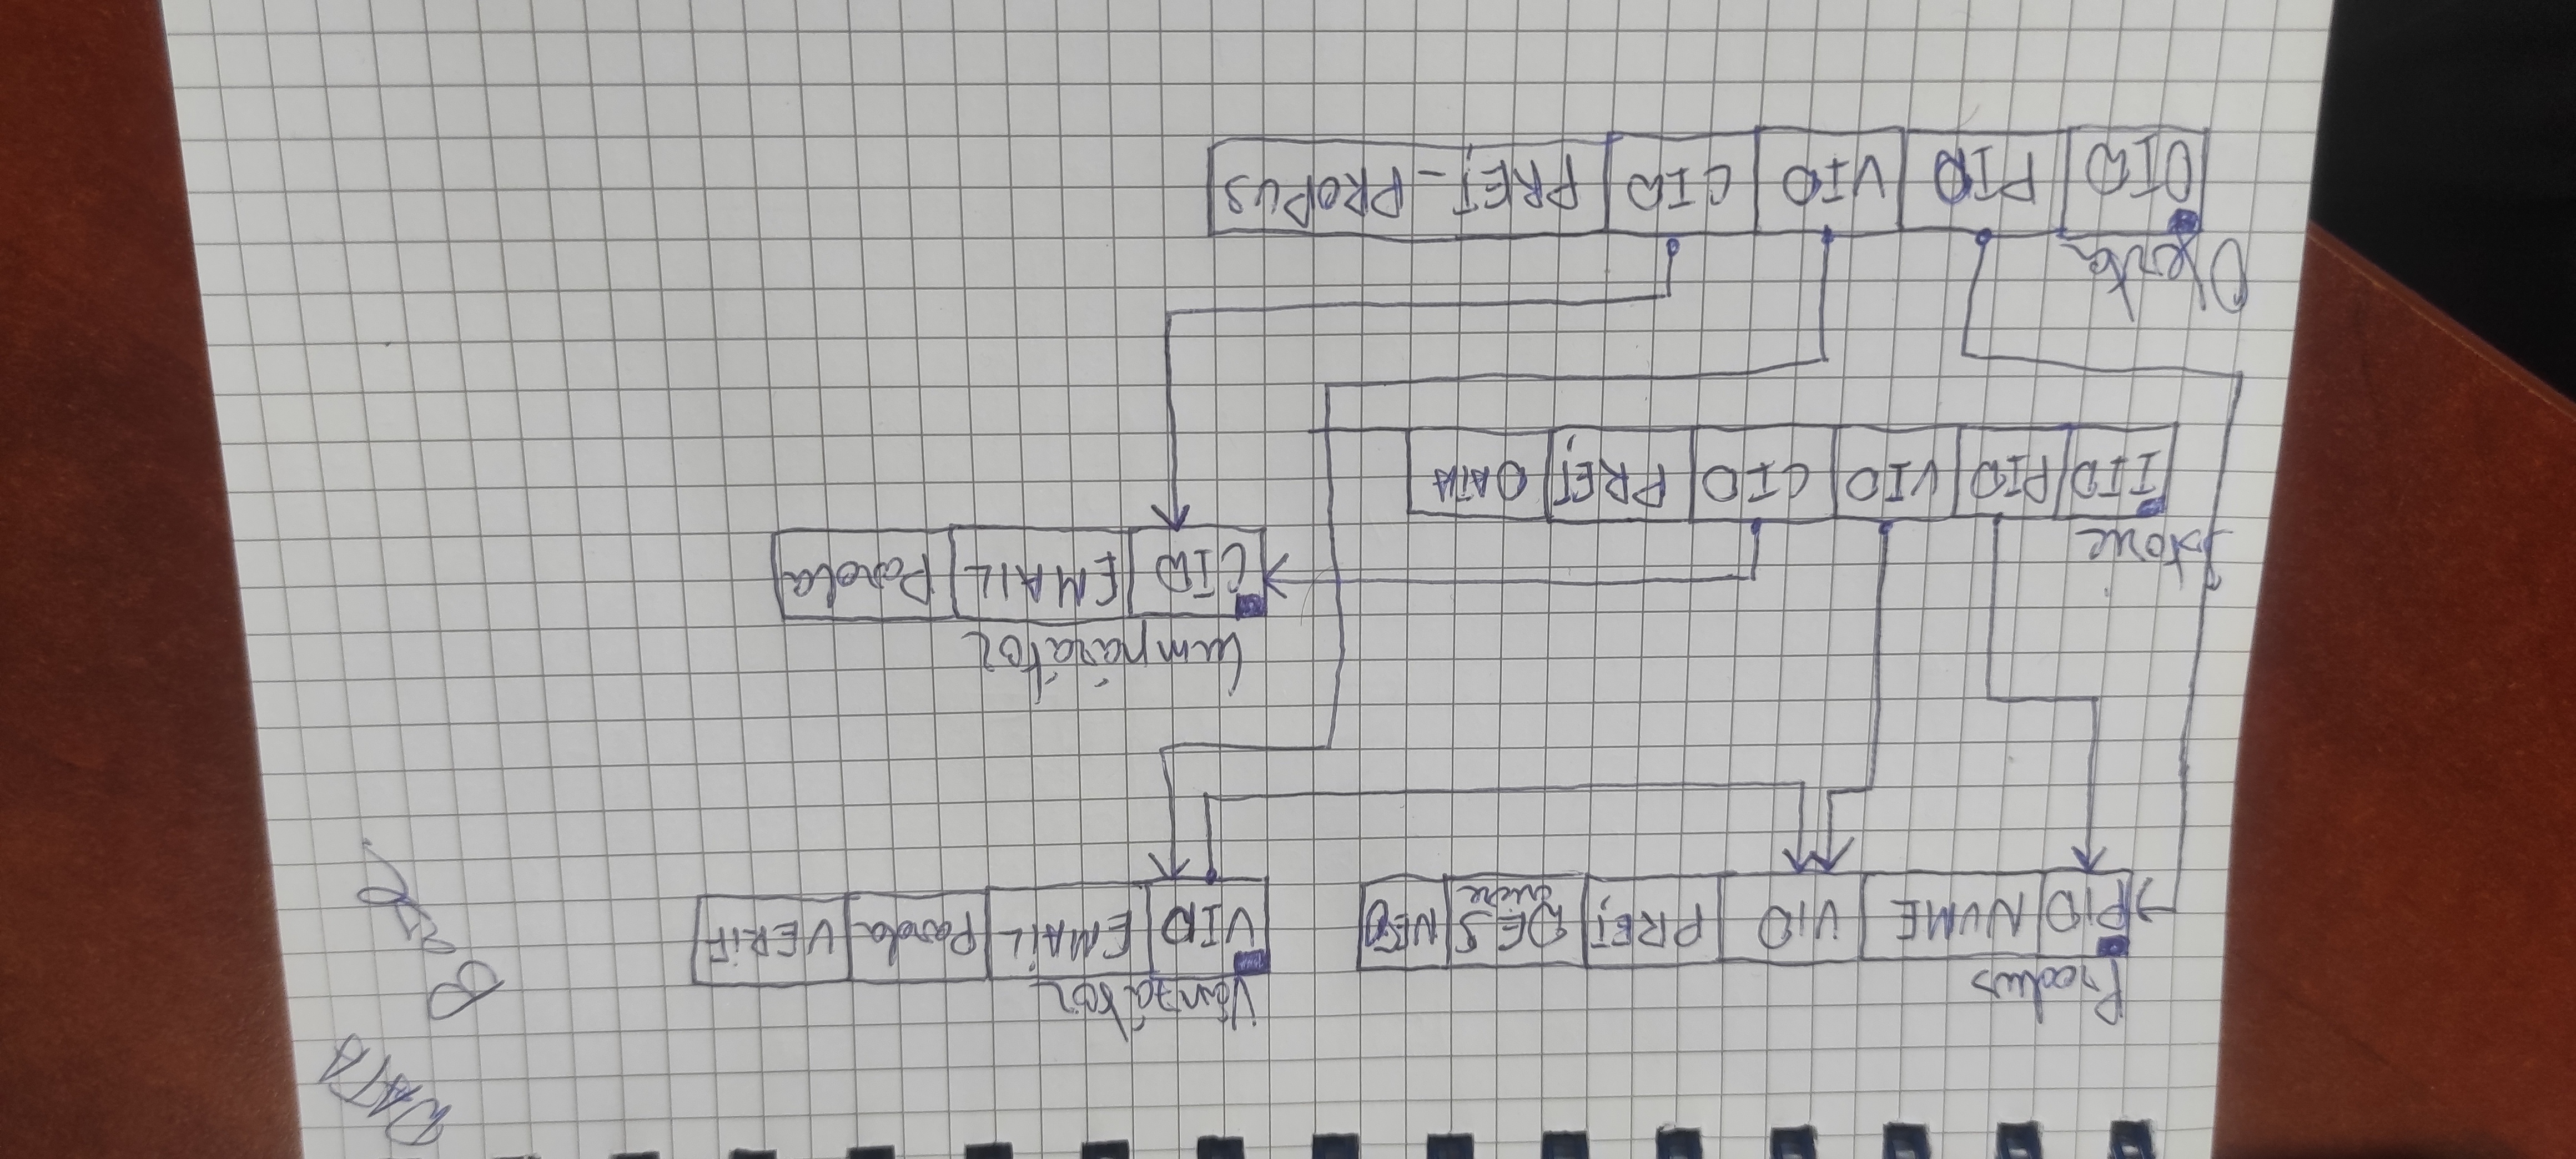 DATA
Base
Produs
PID NUME VID PREȚ DES NEO
criere
Vânzător
VID EMAIL Parola VERIF
Cumpărător
CID EMAIL Parola
Istoric
IID PID VID CID PREȚ DATA
Oferta
OID PID VID CID PREȚ_PROPUS